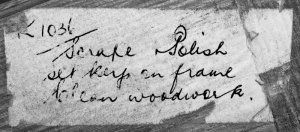 K 1036
Scrape & Polish
set keys on frame
Clean woodwork.